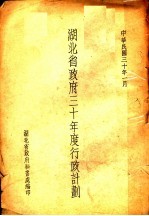 中華民國三十年一月
湖北省政府三十年度行政計劃
湖北省政府秘書處編印